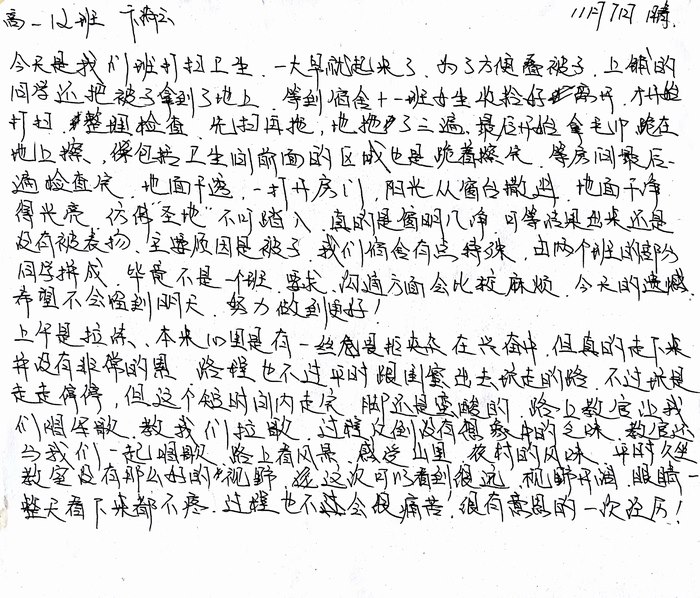 高一12班 卞 11月7日 晴
今天是我们班打扫卫生.一大早就起来了.为了方便叠被子.上铺的
同学还把被子拿到了地上.等到宿舍十一班女生收拾好离开.才开始
打扫.整理检查.先扫再拖,地拖了三遍.最后开始拿毛巾跪在
地上擦,保包括卫生间前面的区域也是跪着擦完.等房间最后一
遍检查完.地面干透,一打开房门,阳光从窗台撒进.地面干净
得光亮.仿佛"圣地"不可踏入.真的是窗明几净.可等结果出来还是
没有被表扬.主要原因是被子.我们宿舍有点特殊.由两个班的部分
同学拼成.毕竟不是一个班.要求、沟通方面会比较麻烦.今天的遗憾.
希望不会留到明天.努力做到更好!
上午是拉练、本来10里是有一丝恐畏担夹杂在兴奋中,但真的走下来
并没有非常的累.路程也不过平时跟闺蜜出去玩走的路.不过玩是
走走停停,但这个短时间内走完.脚还是蛮酸的.路上教官让我
们唱军歌.教我们拉歌.过程反倒没有想象中的乏味.教官还
与我们一起唱歌.路上看风景.感受山里、农村的风味.平时久坐
教室没有那么好的视野.这次可以看到很远.视野开阔.眼睛一
整天看下来都不疼.过程也不会很痛苦!很有意思的一次经历!